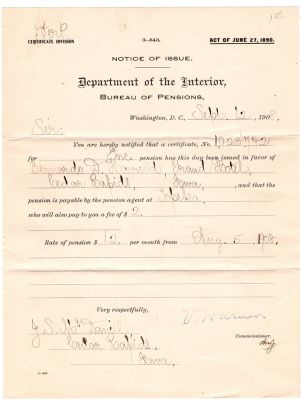 CERTIFICATE DIVISION
3—643.
ACT OF JUNE 27, 1890.
NOTICE OF ISSUE.
Department of the Interior,
BUREAU OF PENSIONS,
Washington, D. C., Sept. 12, 1908
Sir:
You are hereby notified that a certificate, No.
for Inc. pension has this day been issued in favor of
Grand Hotel,
Cedar Rapids, Iowa, and that the
pension is payable by the pension agent at Topeka,
who will also pay to you a fee of $ 2.
Rate of pension $ 12 per month from Aug. 5, 1908.
Very respectfully,
V. Warner
Commissioner.
J. S. McDaniel,
Cedar Rapids,
Iowa.